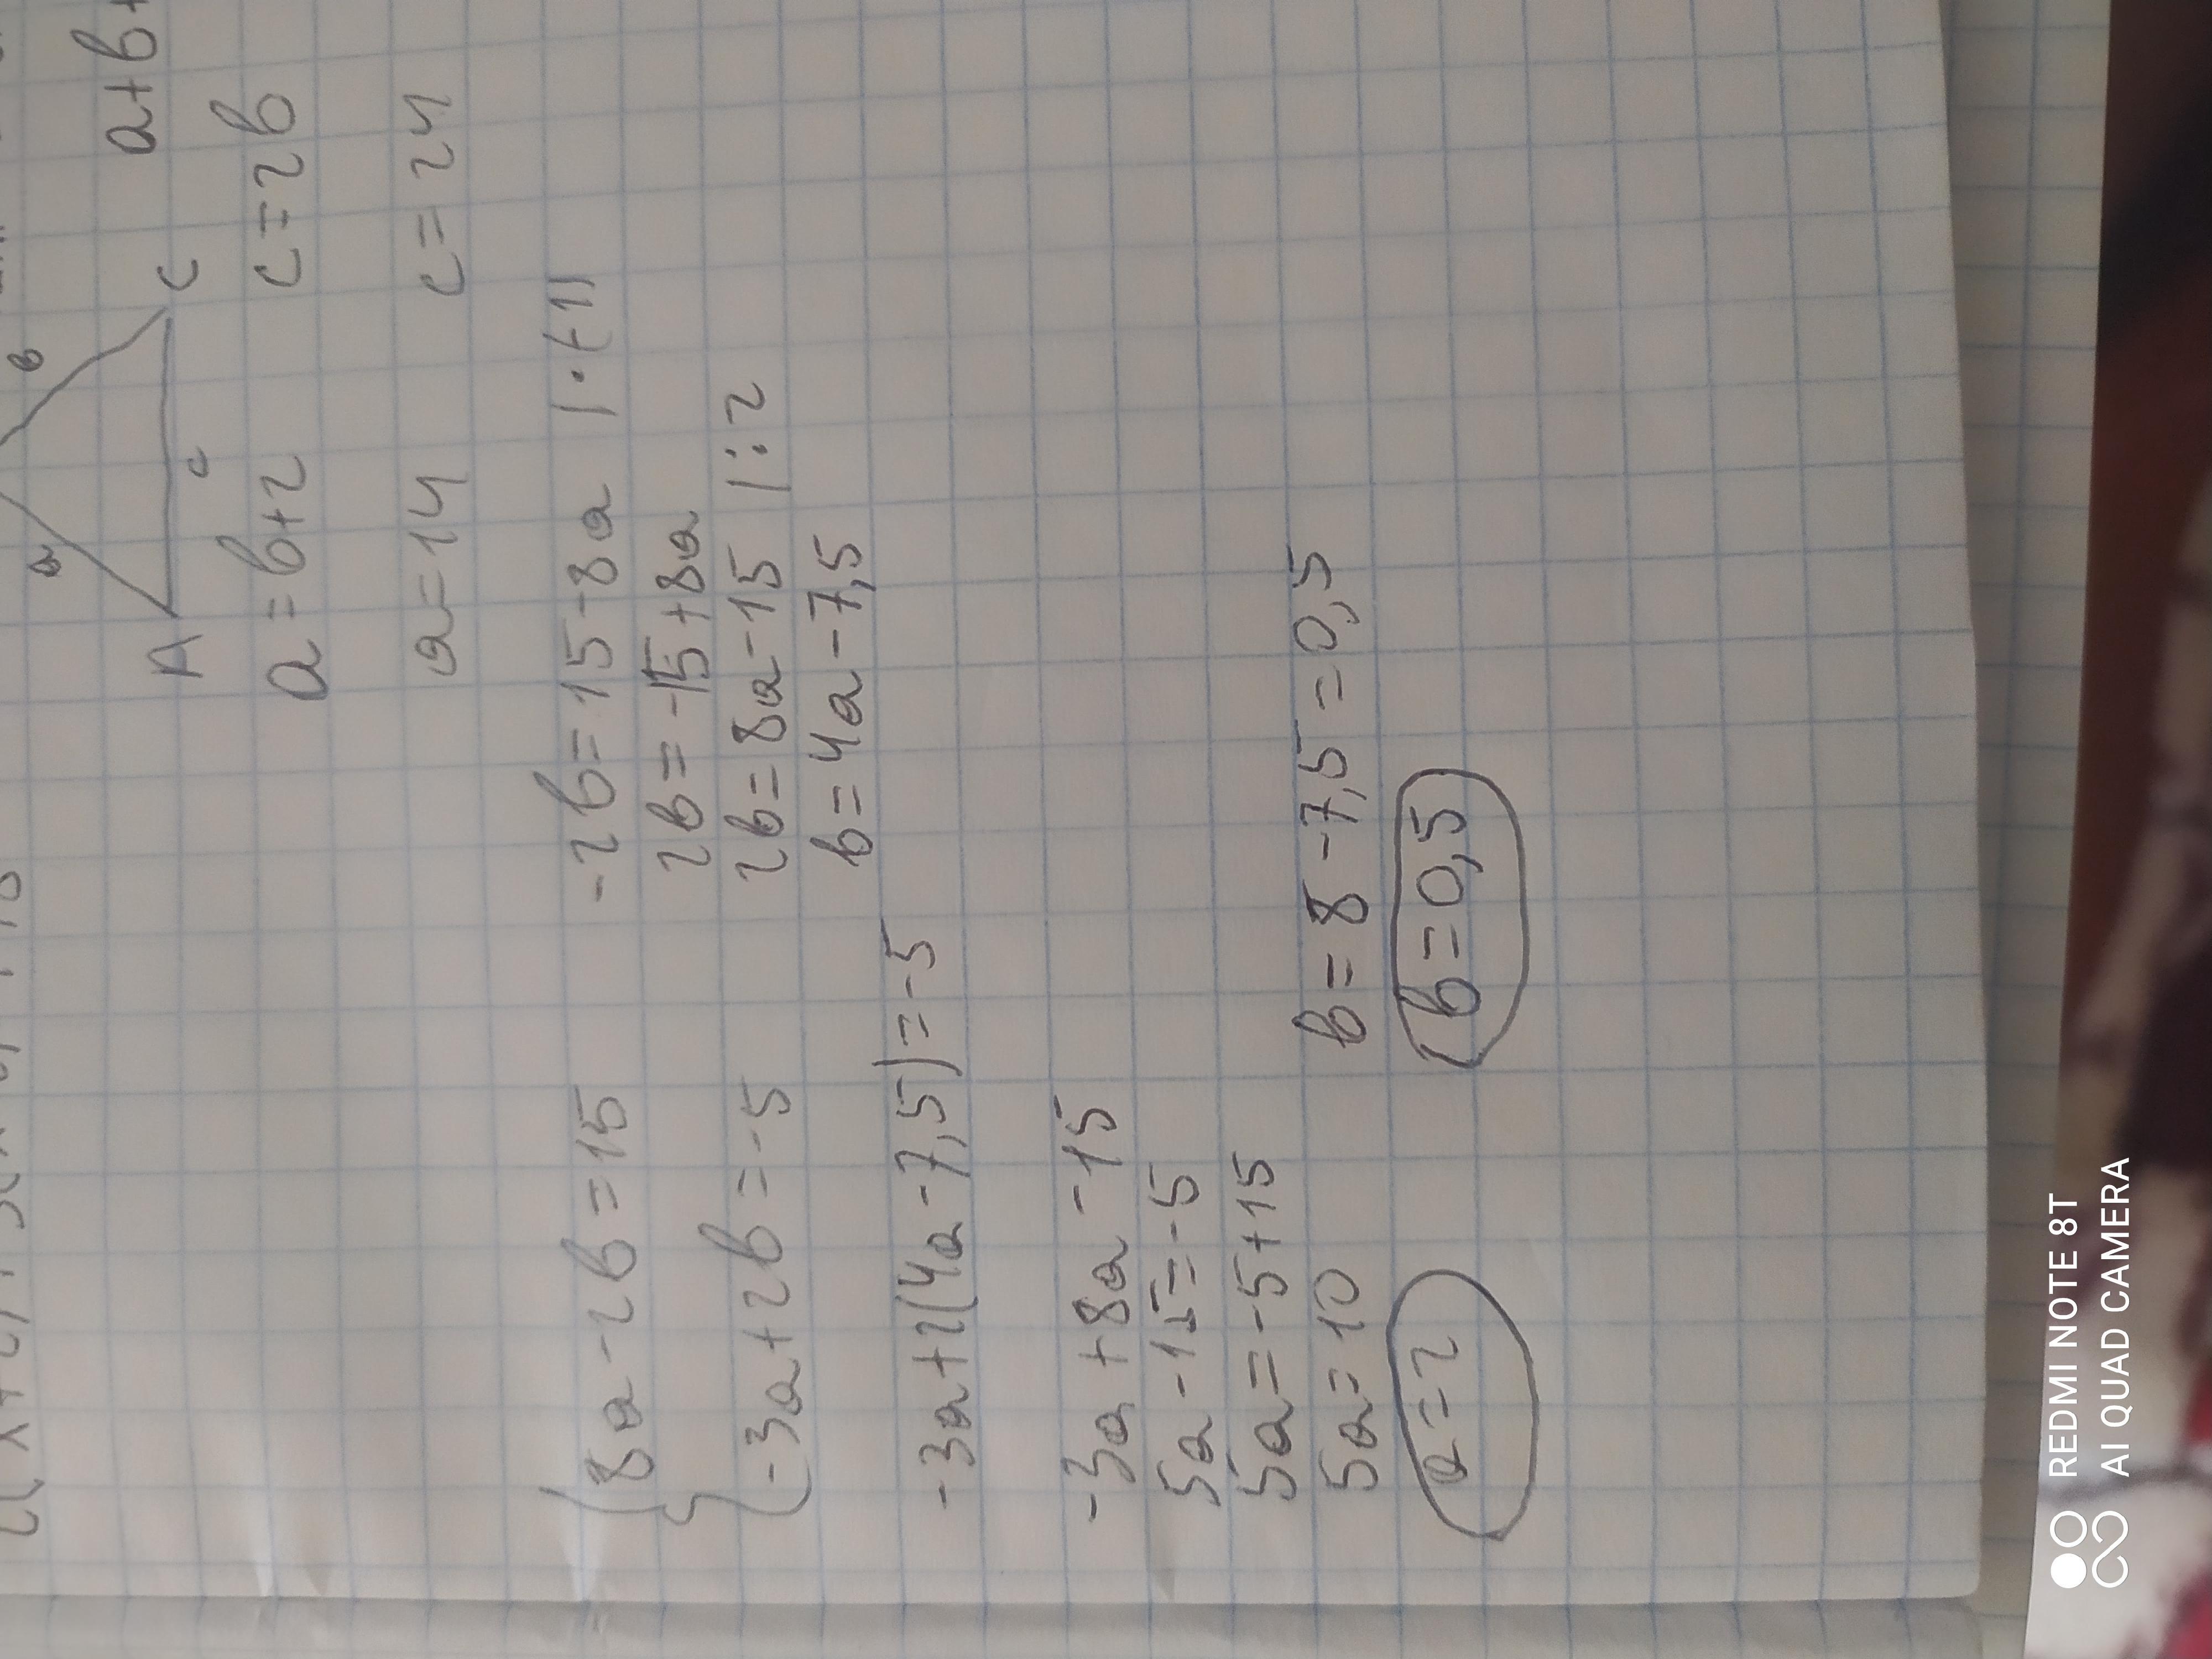 a+b+
a b
A c C
a=b+2 c=2b
a=14 c=24
8a-2b=15 -2b=15-8a |·(-1)
2b=-15+8a
-3a+2b=-5 2b=8a-15 |:2
b=4a-7,5
-3a+2(4a-7,5)=-5
-3a+8a-15
5a-15=-5
5a=-5+15
5a=10 b=8-7,5=0,5
a=2 b=0,5
REDMI NOTE 8T
AI QUAD CAMERA